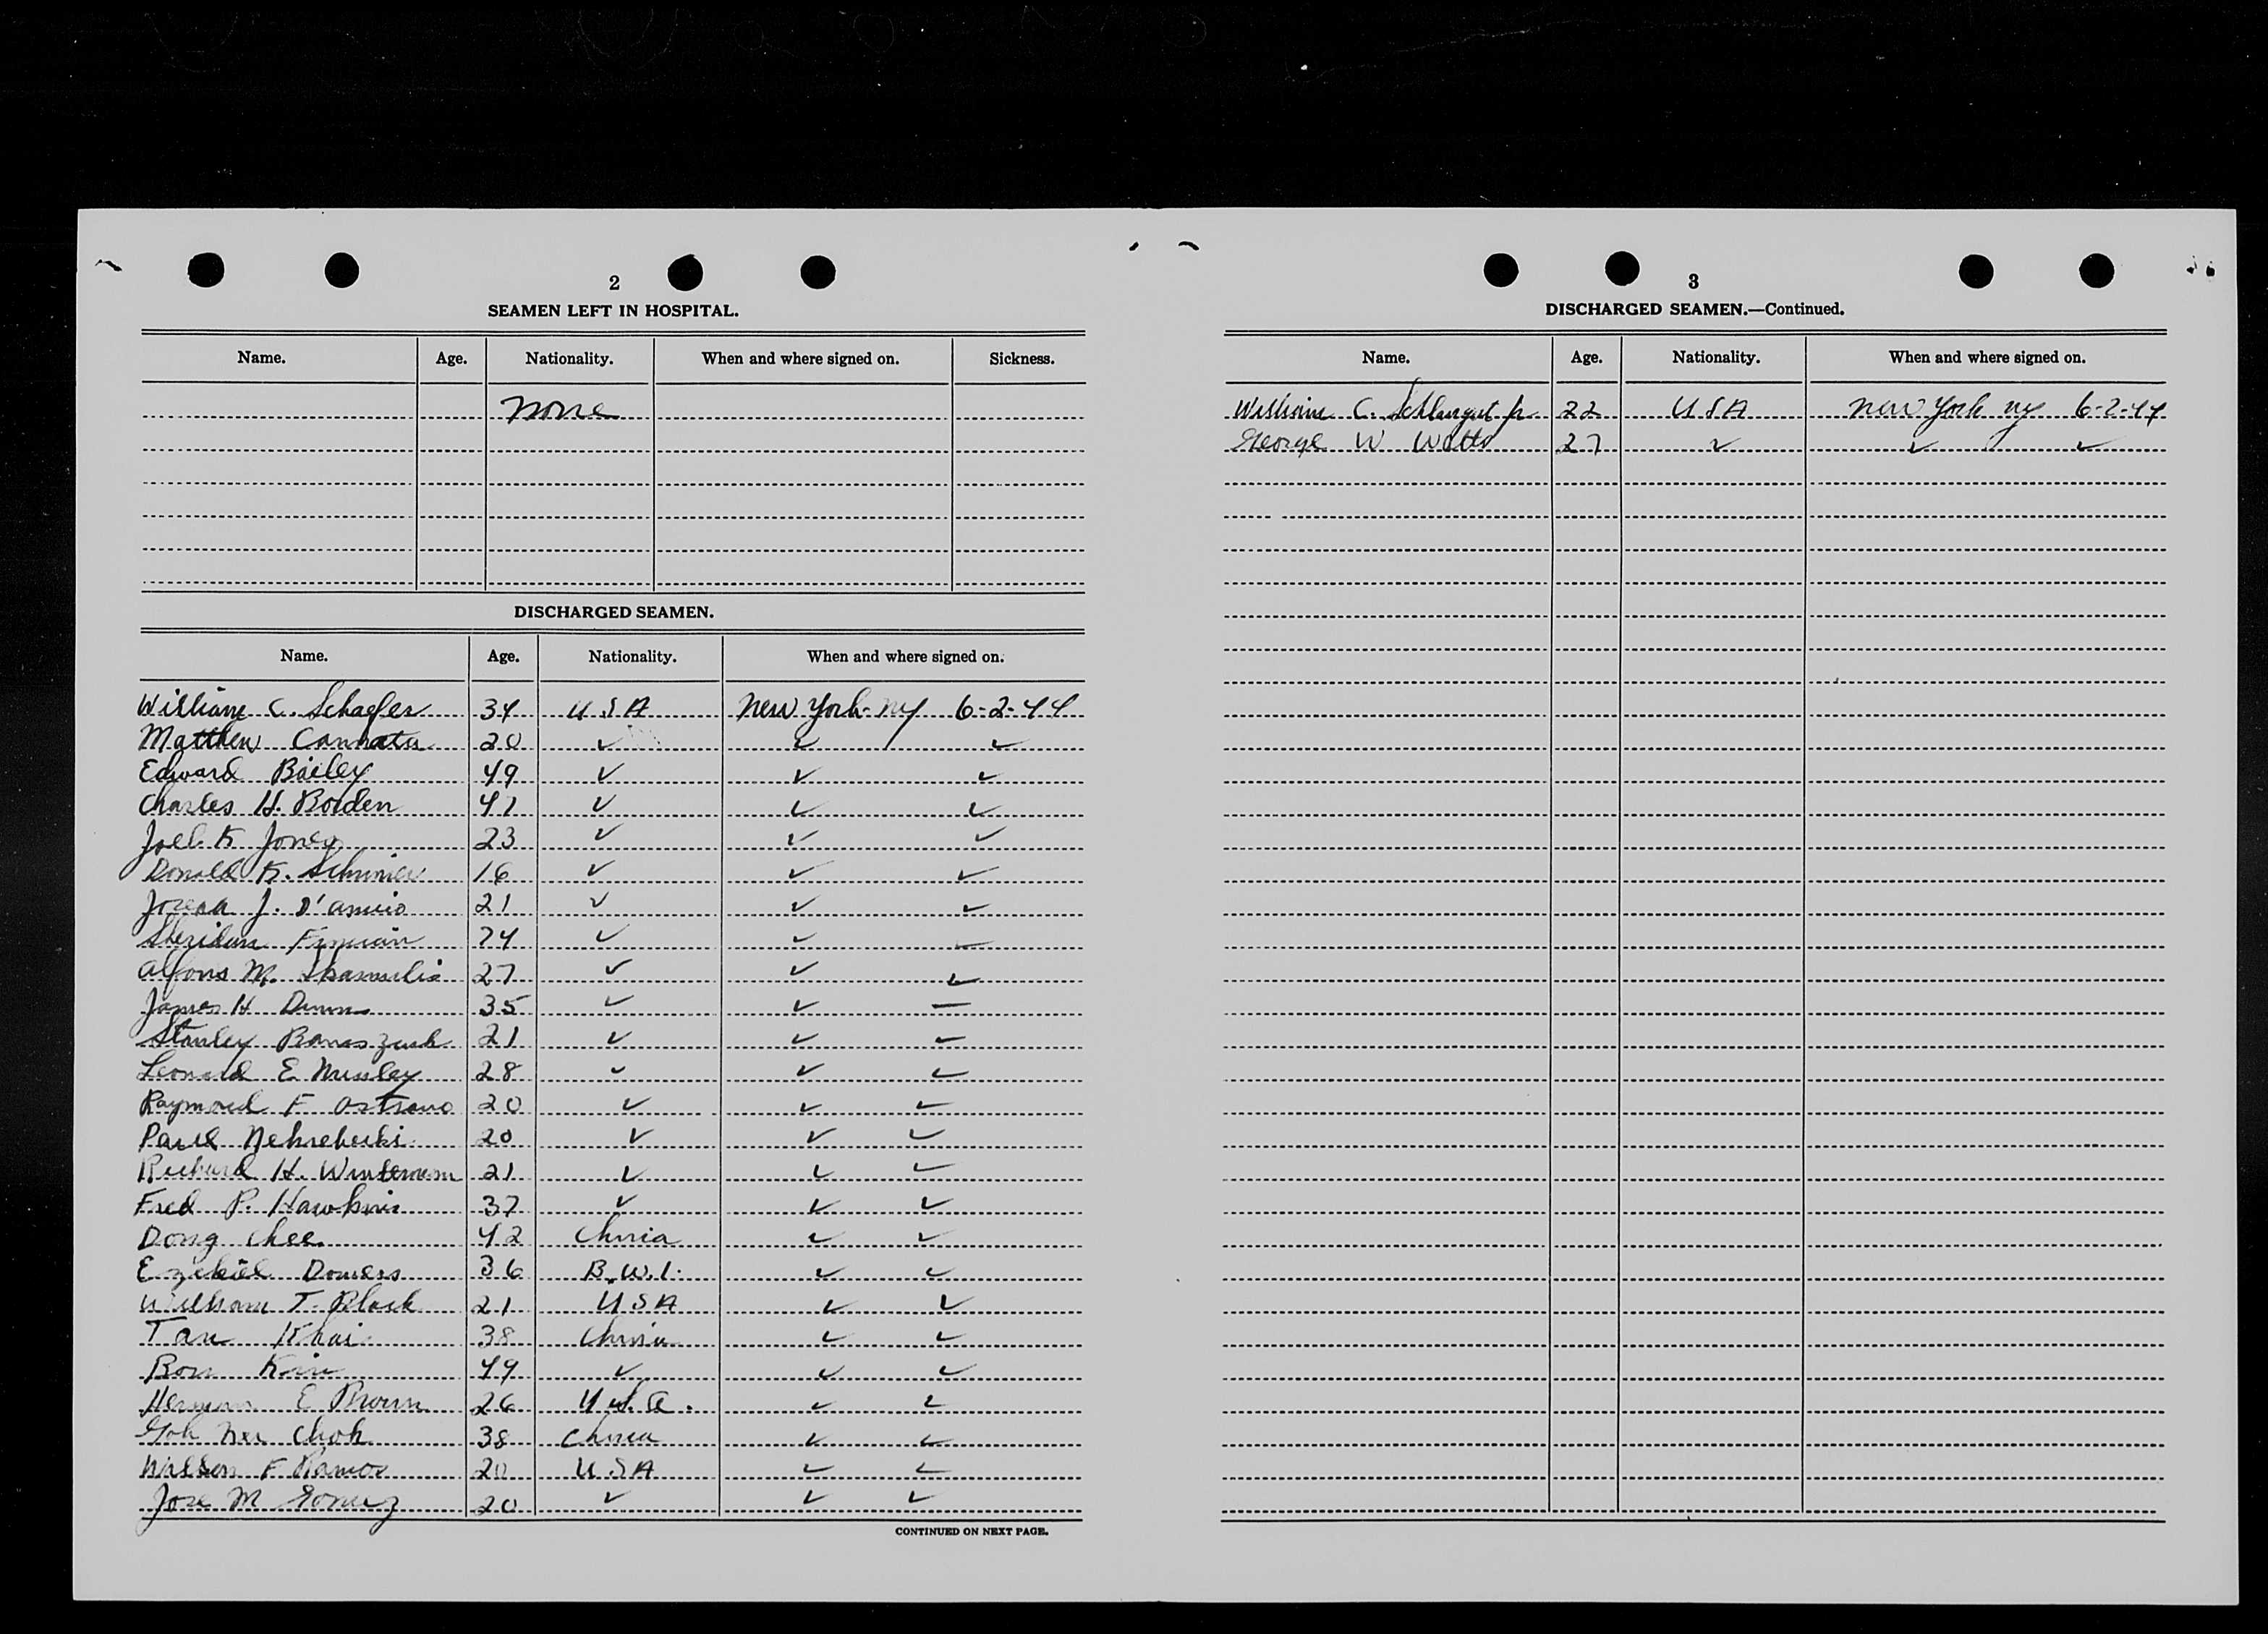 2
SEAMEN LEFT IN HOSPITAL.
Name. Age. Nationality. When and where signed on. Sickness.
None
DISCHARGED SEAMEN.
Name. Age. Nationality. When and where signed on.
William C. Schaefer 34 USA New York NY 6-2-44
Matthew Cannata 20 ✓ ✓ ✓
Edward Bailey 49 ✓ ✓ ✓
Charles H. Borden 47 ✓ ✓ ✓
Joel K Jones 23 ✓ ✓ ✓
Donald K. 16 ✓ ✓ ✓
Joseph J. D'amico 21 ✓ ✓ ✓
Sheridan 24 ✓ ✓ ✓
Alfons M. 27 ✓ ✓ ✓
James H Dunn 35 ✓ ✓ —
Stanley Banaszuk 21 ✓ ✓ ✓
Leonard E 28 ✓ ✓ ✓
Raymond F 20 ✓ ✓ ✓
Paul 20 ✓ ✓ ✓
Richard H. 21 ✓ ✓ ✓
Fred P. Hawkins 37 ✓ ✓ ✓
Dong Chee 42 China ✓ ✓
Ezekiel 36 B.W.I. ✓ ✓
William T. Black 21 USA ✓ ✓
Tan Khai 38 China ✓ ✓
49 ✓ ✓ ✓
Herman E Brown 26 U.S.A. ✓ ✓
Goh Chok 38 China ✓ ✓
F Ramos 20 USA ✓ ✓
Jose M Gomez 20 ✓ ✓ ✓
CONTINUED ON NEXT PAGE.
3
DISCHARGED SEAMEN.—Continued.
Name. Age. Nationality. When and where signed on.
William C. Jr 22 USA New York NY 6-2-44
George W Watts 27 ✓ ✓ ✓